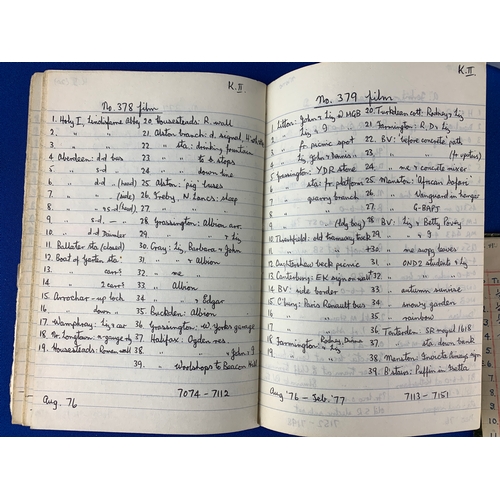 K.II
No. 378 film
1. Holy I, Lindisfarne Abby
2. " "
3. " "
4. Aberdeen: d.d bar
5. " s.d
6. " d.d. (head)
7. " " (side)
8. " s.d (head)
9. " s.d. —
10. " d.d Daimler
11. Ballater sta (closed)
12. Boat of Garten sta
13. " cars
14. " 2 cars
15. Arrochar - up loch
16. " down "
17. Wamphray: Liz & car
18. Nr. Longtown:
19. Housesteads: Roman wall
20. Housesteads: R. wall
21. Alston branch: d. signal,
22. " sta: drinking fountain
23. " " to b stops
24. " down line
25. Alston: pig buses
26. Ireby, N Lancs: sheep
27. " "
28. Grassington: Albion arr.
29. " " & Liz
30. Gray: Liz, Barbara & John
31. " " & Albion
32. " me "
33. " Albion
34. " & Edgar
35. Buckden: Albion
36. Grassington: W. Yorks garage
37. Halifax: Ogden res.
38. " " " & John & I
39. " Woolshops to Beacon Hill
Aug. 76
7074 - 7112
K.II
No. 379 film
1. Litton: John & Liz & MGB
2. " Liz & I
3. " pr picnic spot
4. " Liz, John & Davis
5. Grassington: YDR stone
6. " sta: fr platform
7. " quarry branch
8. "
9. " (ldg bay)
10. Threshfield: old tramway track
11. " " "
12. Oughtershaw beck picnic
13. Canterbury: EK sign on wall
14. BV: side border
15. C'bury: Paris Renault bus
16. " "
17. "
18. Farmington: Rodney, Dinna
19. " " & Liz
20. Turkdean cott: Rodney & Liz
21. Farmington: R, D & Liz
22. BV: 'before concrete' path
23. " " " (fr upstairs)
24. " me & concrete mixer
25. Manston: African Safari
26. " Vanguard in hangar
27. " G-BAPT
28. BV: Liz & Betty Povey
29. " " & I
30. " me
31. " OND2 students & Liz
32. "
33. " autumn sunrise
34. " snowy garden
35. " rainbow
36. Tenterden: SR
37. " sta down bank
38. Manston: Invicta
39. B'stairs: Puffin in Isetta
Aug '76 - Feb. '77
7113 - 7151